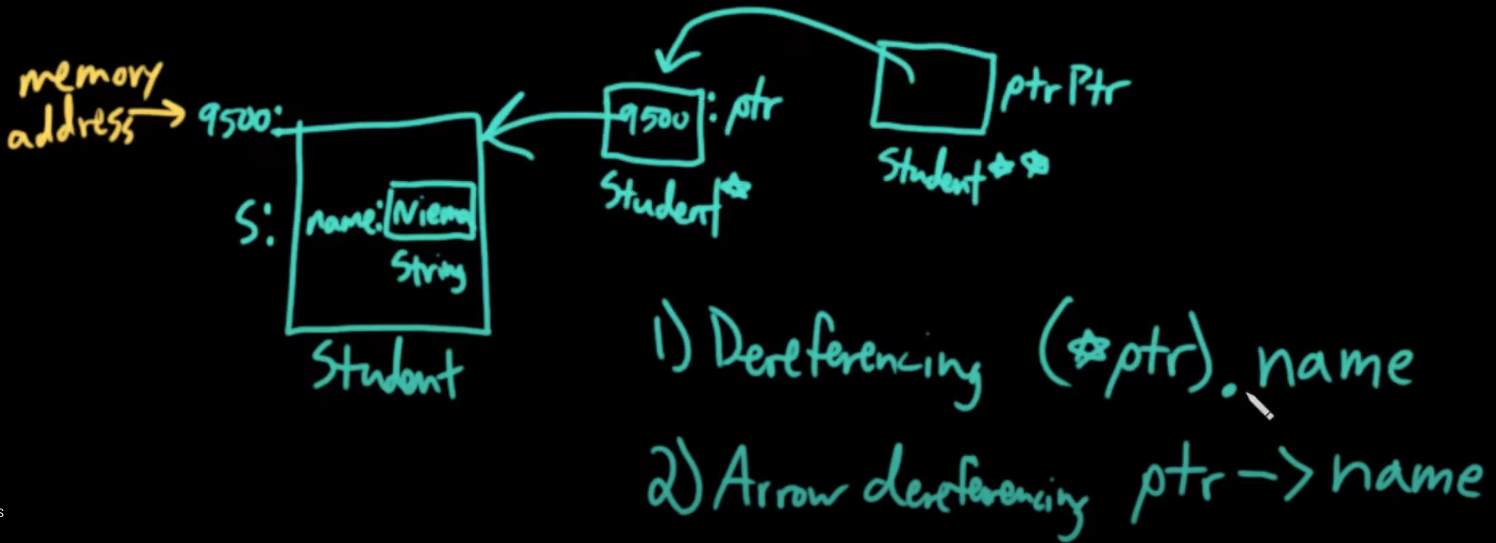 memory
address
9500:
S:
name: Niema
String
Student
9500
: ptr
Student*
ptrPtr
Student**
1) Dereferencing (*ptr).name
2) Arrow dereferencing ptr->name
s